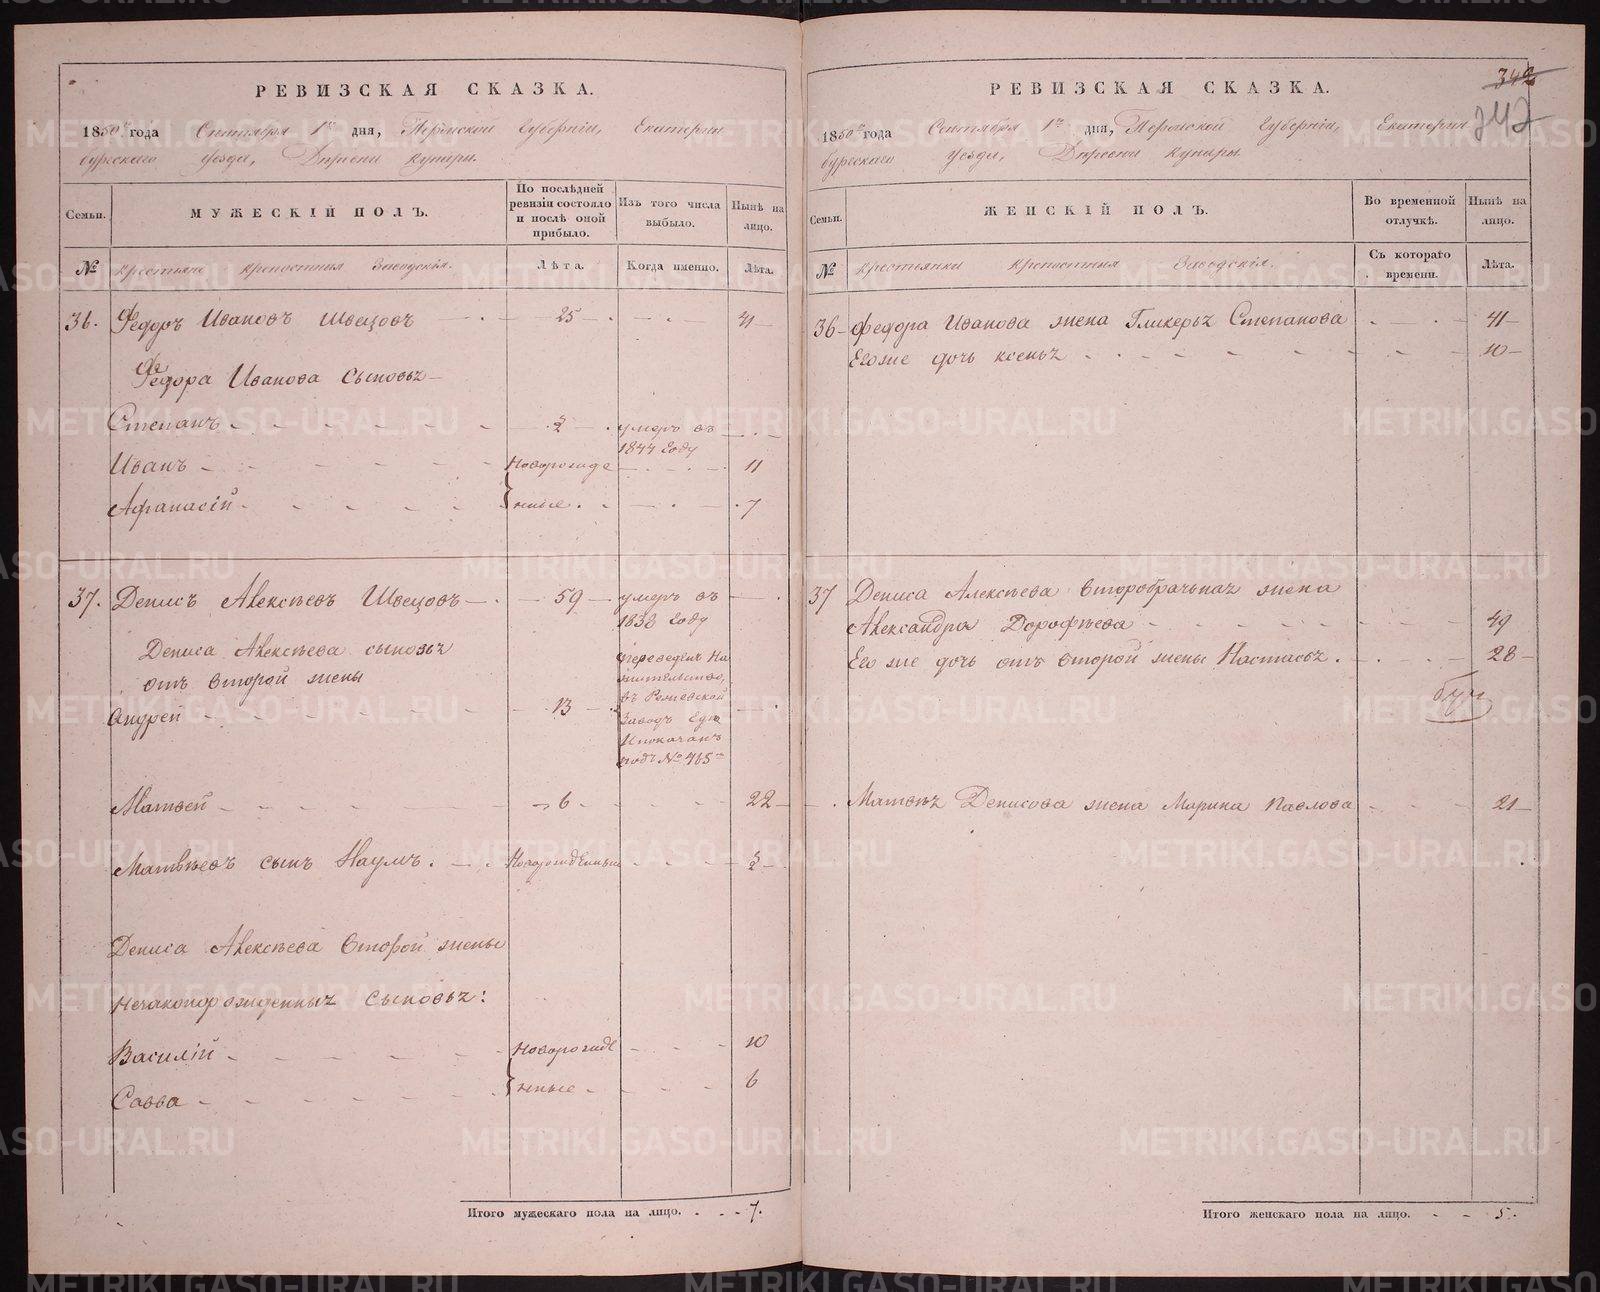 РЕВИЗСКАЯ СКАЗКА.
1850го года Сентября 1го дня, Пермской Губернiи, Екатерин
бургскаго уезда, Дирѣвни Кунары.
Семьи.
МУЖЕСКIЙ ПОЛЪ.
По послѣдней ревизiи состояло и послѣ оной прибыло.
Изъ того числа выбыло.
Нынѣ на лицо.
№
крестьяне крепостныя Заводскiя.
Лѣта.
Когда именно.
Лѣта.
36. Федоръ Ивановъ Швецовъ 25 41
Федора Иванова Сыновья
Степанъ 2 умеръ въ 1844 году
Иванъ Новорожде 11
Афанасiй нные 7
37. Денисъ Алексѣевъ Швецовъ 59 умеръ въ 1838 году
Дениса Алексѣева сыновья
отъ второй жены
Андрей 13 переведенъ на жительство, въ Режевской Заводъ Где и показанъ подъ № 765
Матвей 6 22
Матвѣевъ сынъ Наумъ. Новорожденный 3
Дениса Алексѣева второй жены
незаконорожденныя Сыновья:
Василiй Новорожде 10
Савва нные 6
Итого мужескаго пола на лицо. 7.
РЕВИЗСКАЯ СКАЗКА.
342
242
1850го года Сентября 1го дня, Пермской Губернiи, Екатерин
бургскаго уезда, Дирѣвни Кунары.
Семьи.
ЖЕНСКIЙ ПОЛЪ.
Во временной отлучкѣ.
Нынѣ на лицо.
№
крестьянки крепостныя Заводскiя.
Съ котораго времени.
Лѣта.
36 Федора Иванова жена Гликерья Степанова 41
Егоже дочь Ксенья 10
37 Дениса Алексѣева второбрачная жена
Александра Дорофѣева 49
Его же дочь отъ второй жены Настасья. 28
Матвѣя Денисова жена Марина Павлова 21
Итого женскаго пола на лицо. 5.
METRIKI.GASO-URAL.RU